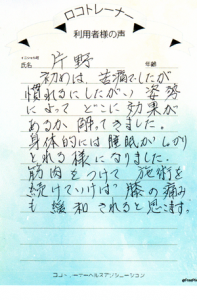 ロコトレーナー
利用者様の声
氏名
片野
年齢
初めは、苦痛でしたが
慣れるにしたがい 姿勢
によって どこに効果が
あるか 解ってきました。
身体的には 睡眠がしっかり
とれる様になりました。
筋肉をつけて 施術を
続けていけば 膝の痛み
も 緩和されると思います。